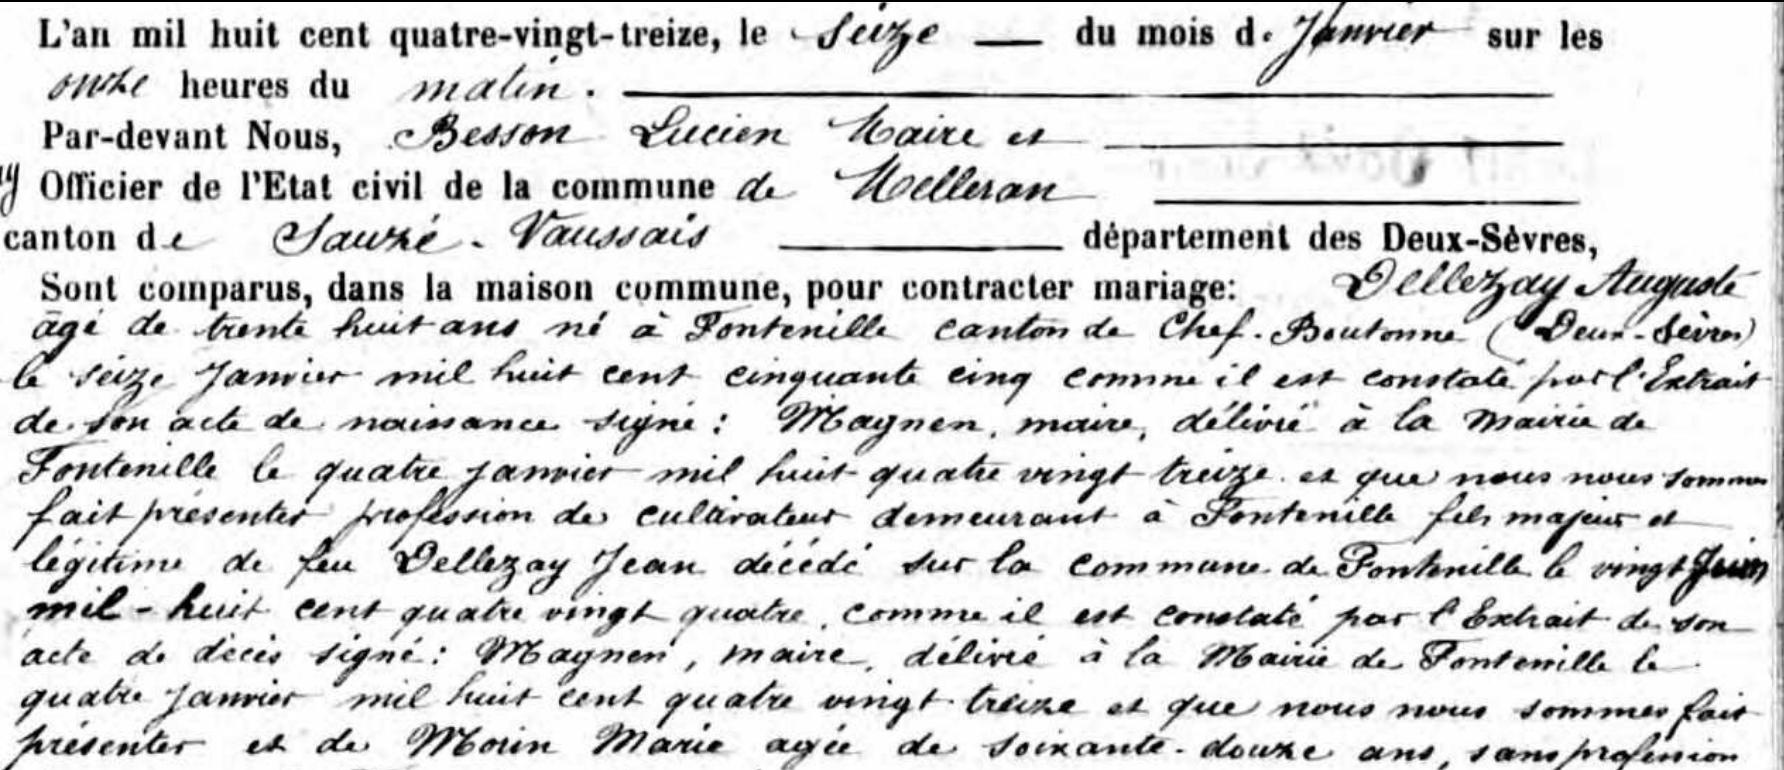 L'an mil huit cent quatre-vingt-treize, le seize du mois de Janvier sur les
onze heures du matin.
Par-devant Nous, Besson Lucien Maire et
Officier de l'Etat civil de la commune de Melleran
canton de Sauzé-Vaussais département des Deux-Sèvres,
Sont comparus, dans la maison commune, pour contracter mariage: Dellezay Auguste
âgé de trente huit ans né à Fontenille canton de Chef-Boutonne (Deux-Sèvres)
le seize Janvier mil huit cent cinquante cinq comme il est constaté par l'Extrait
de son acte de naissance signé: Magnen, maire, délivré à la Mairie de
Fontenille le quatre janvier mil huit quatre vingt treize et que nous nous sommes
fait présenter profession de cultivateur demeurant à Fontenille fils majeur et
légitime de feu Dellezay Jean décédé sur la commune de Fontenille le vingt Juin
mil-huit cent quatre vingt quatre, comme il est constaté par l'Extrait de son
acte de décès signé: Magnen, maire, délivré à la Mairie de Fontenille le
quatre janvier mil huit cent quatre vingt treize et que nous nous sommes fait
présenter et de Morin Marie agée de soixante-douze ans, sans profession